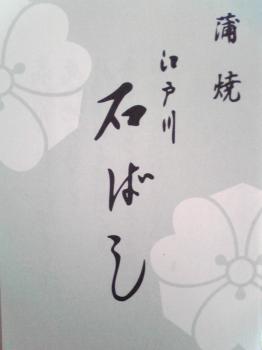 蒲焼
江戸川
石ばし